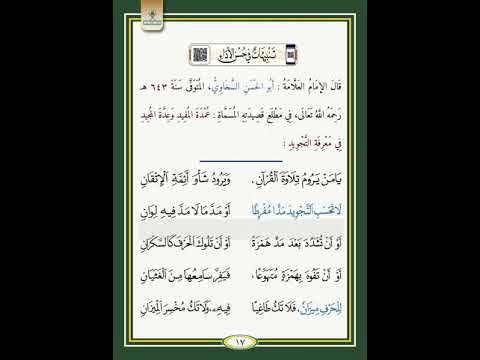 تَنْبِيهَاتٌ فِي حُسْنِ الأَدَاءِ
قَالَ الإِمَامُ العَلَّامَةُ : أَبُو الحَسَنِ السَّخَاوِيُّ، المُتَوَفَّى سَنَةَ ٦٤٣ هـ
رَحِمَهُ اللَّهُ تَعَالَى، فِي مَطْلَعِ قَصِيدَتِهِ المُسَمَّاةِ : عُمْدَةَ المُفِيدِ وَعِدَّةَ المُجِيدِ
فِي مَعْرِفَةِ التَّجْوِيدِ :
يَامَنْ يَرُومُ تِلَاوَةَ الْقُرْآنِ، وَيَرُودُ شَأْوَ أَئِمَّةِ الْإِتْقَانِ
لَا تَحْسَبِ التَّجْوِيدَ مَدًّا مُفْرِطًا أَوْ مَدَّ مَا لَا مَدَّ فِيهِ لِوَانِ
أَوْ أَنْ تُشَدِّدَ بَعْدَ مَدٍّ هَمْزَةً أَوْ أَنْ تَلُوكَ الْحَرْفَ كَالسَّكْرَانِ
أَوْ أَنْ تَفُوهَ بِهَمْزَةٍ مُتَهَوِّعًا، فَيَفِرَّ سَامِعُهَا مِنَ الْغَثَيَانِ
لِلْحَرْفِ مِيزَانٌ، فَلَا تَكُ طَاغِيًا فِيهِ، وَلَا تَكُ مُخْسِرَ الْمِيزَانِ
١٧